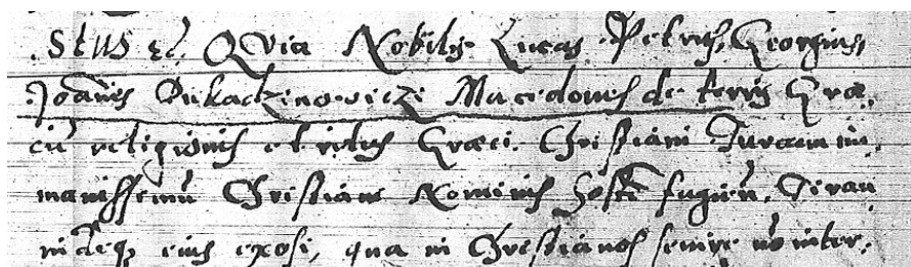 Stus etc. Quia Nobiles Lucas, Petrus, Georgius,
Joannes Dukadzinowiczi Macedones de terris Græ.
cis religionis et ritus Græci Christiani Turcam im.
manissimum Christiani Nominis hostem fugien. Tiran
nidemq eius exosi, qua in Christianos sevire non inter.